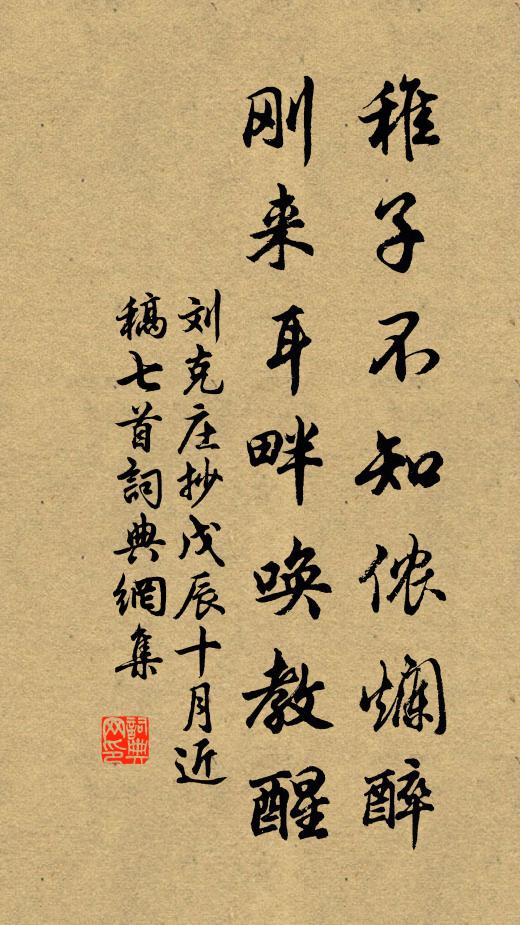 稚子不知侬爛醉
刚来耳畔唤教醒
刘克庄抄戊辰十月近
稿七首詞典網集
詞典网印